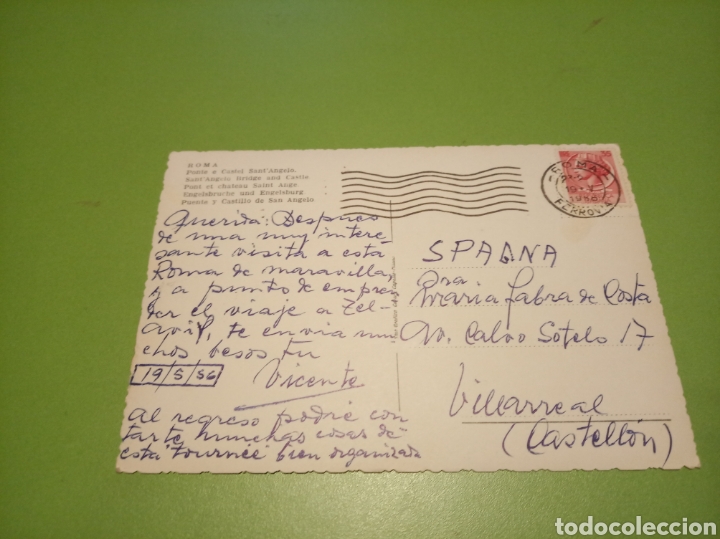 ROMA
Ponte e Castel Sant'Angelo.
Sant'Angelo Bridge and Castle
Pont et chateau Saint Ange
Engelsbrucke und Engelsburg
Puente y Castillo de San Angelo
Querida: Despues
de una muy intere-
sante visita a esta
Roma de maravilla,
y a punto de empren
der el viaje a Tel-
Aviv, te envia mu
chos besos tu
19/5/56
Vicente
Al regreso podré con
tarte muchas cosas de
esta tournée bien organizada
ROMA
FERROVIA
SPAGNA
Sra.
Maria Fabra de Costa
Av. Calvo Sotelo 17
Villarreal
(Castellón)
todocoleccion